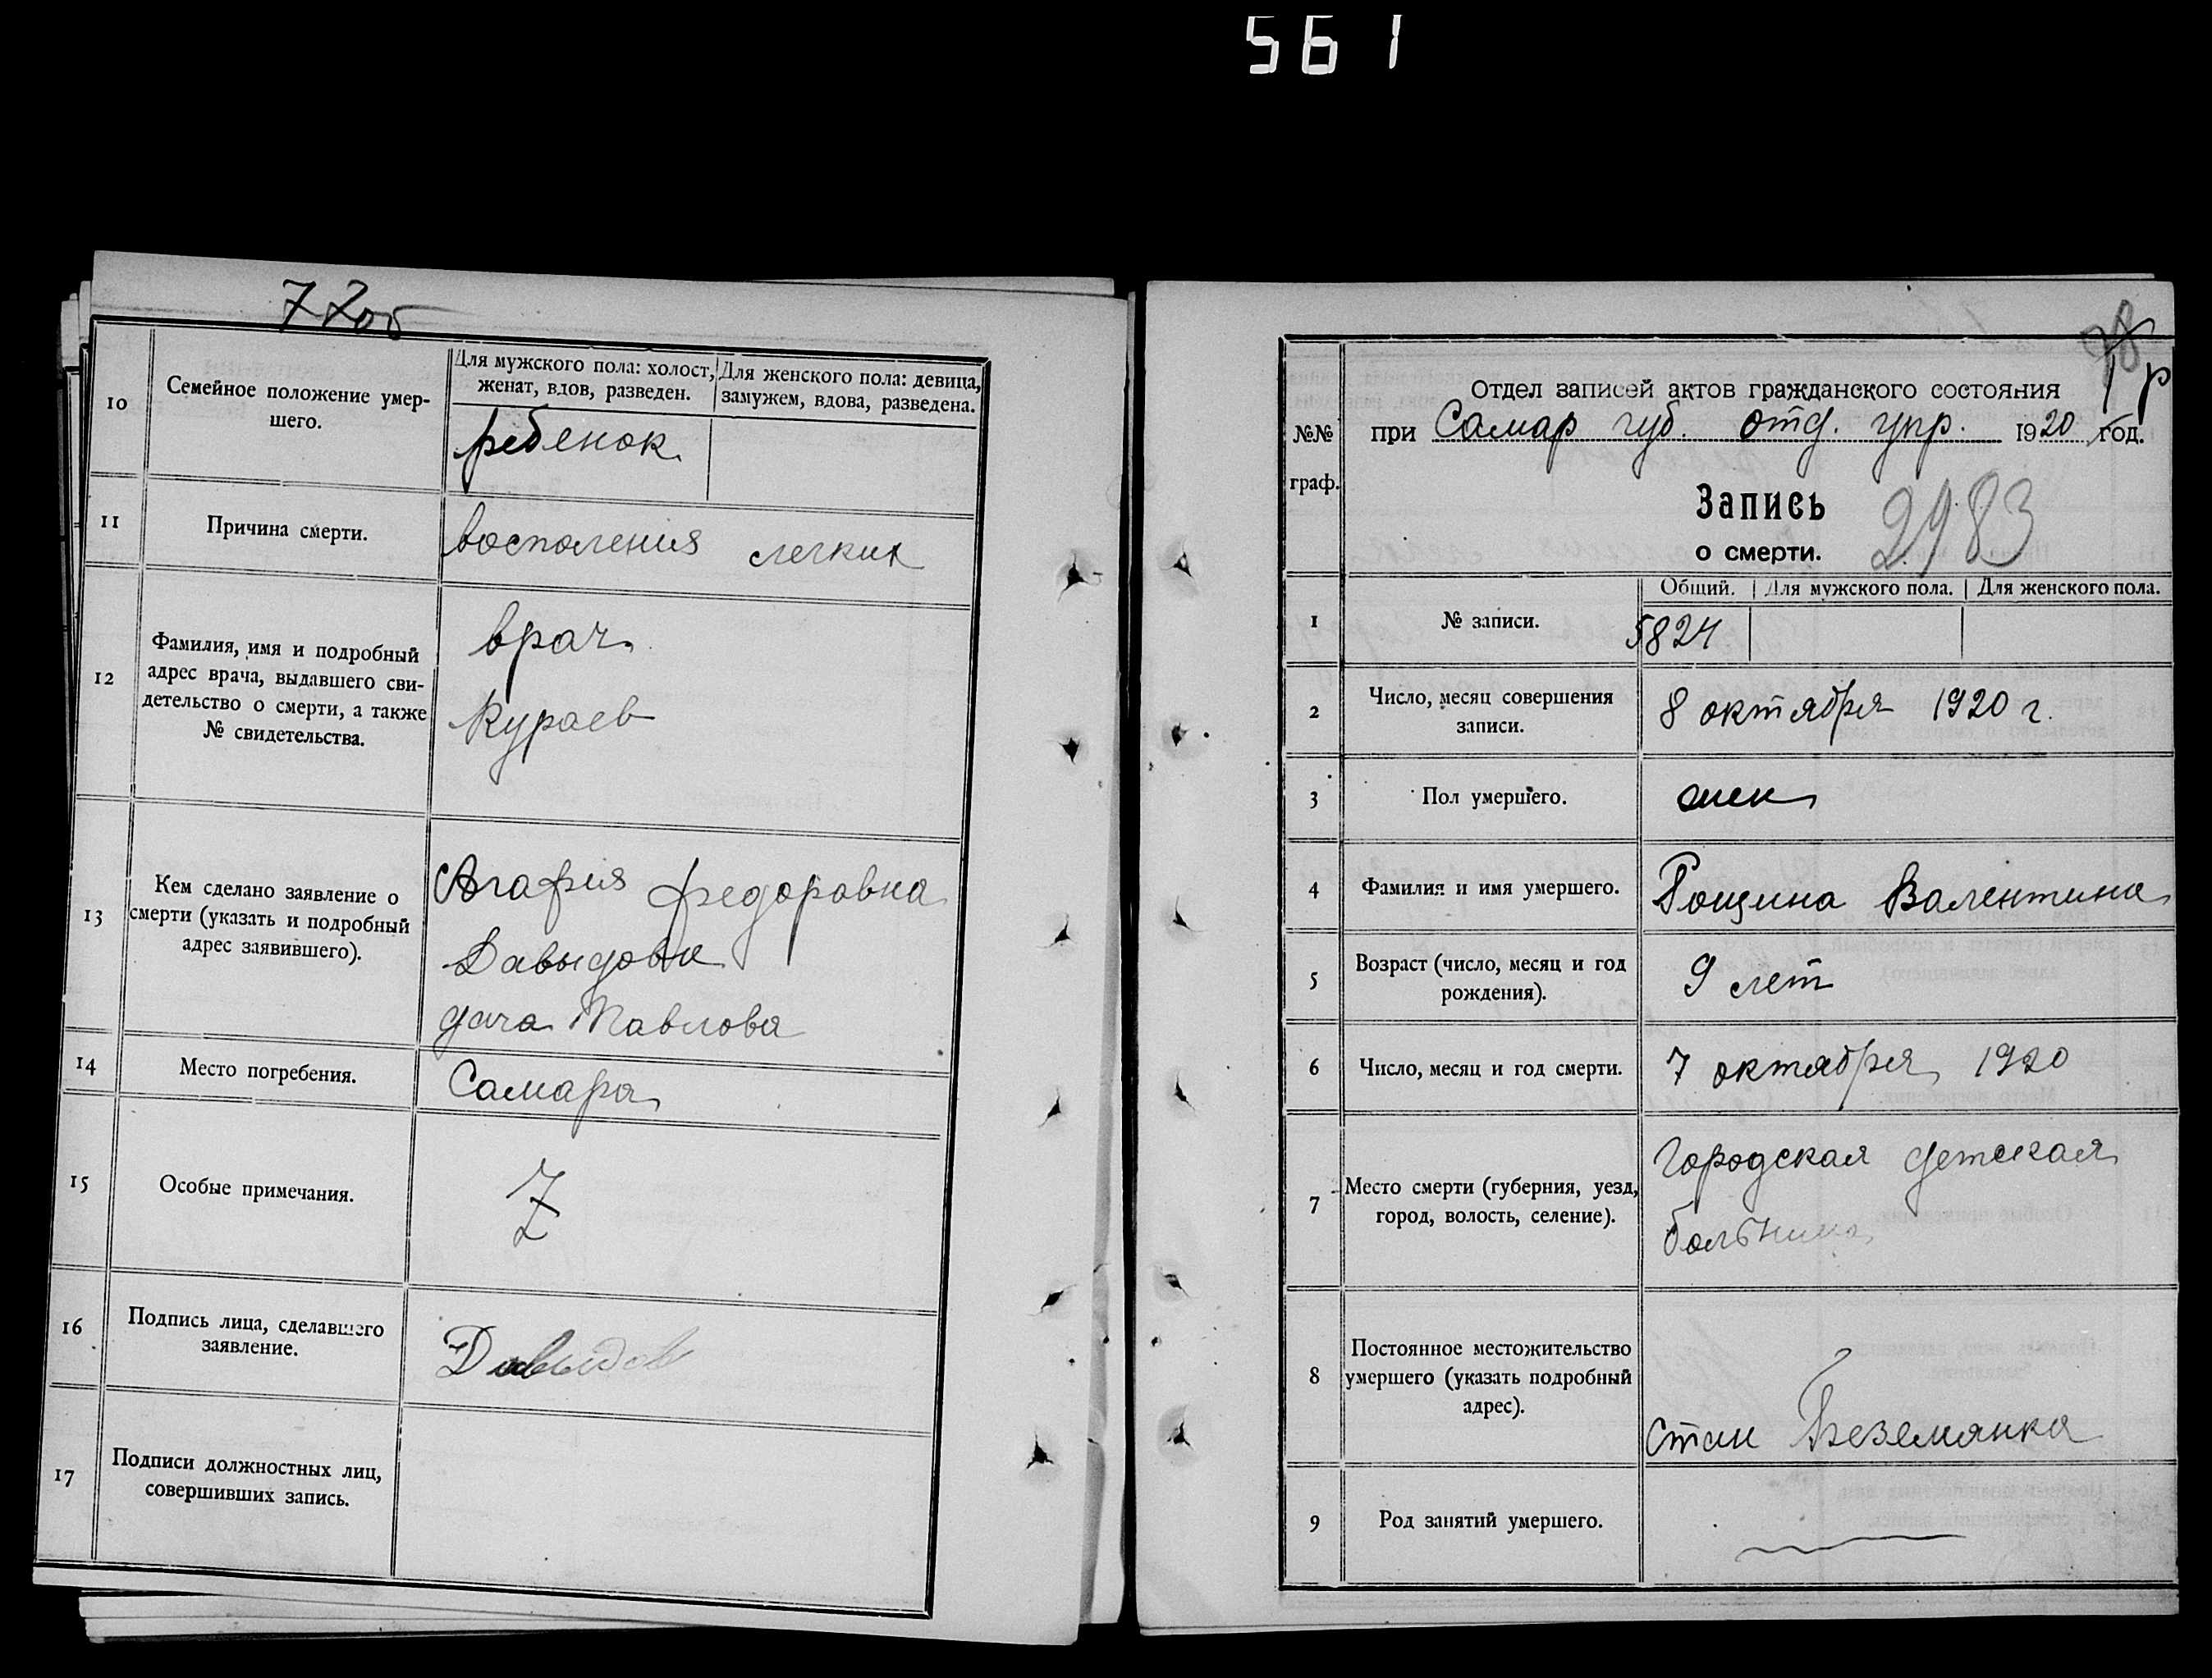 561
72об
10
Семейное положение умер-
шего.
Для мужского пола: холост,
женат, вдов, разведен.
Для женского пола: девица,
замужем, вдова, разведена.
ребенок
11
Причина смерти.
воспаления легких
12
Фамилия, имя и подробный
адрес врача, выдавшего сви-
детельство о смерти, а также
№ свидетельства.
врач
Кураев
13
Кем сделано заявление о
смерти (указать и подробный
адрес заявившего).
Агафия Федоровна
Давыдова
дача Павлова
14
Место погребения.
Самара
15
Особые примечания.
Z
16
Подпись лица, сделавшего
заявление.
Давыдов
17
Подписи должностных лиц,
совершивших запись.
№№
граф.
Отдел записей актов гражданского состояния
при Самар губ. отд. упр. 1920 год.
Запись
о смерти.
2983
Общий. Для мужского пола. Для женского пола.
1
№ записи.
5824
2
Число, месяц совершения
записи.
8 октября 1920 г.
3
Пол умершего.
жен
4
Фамилия и имя умершего.
Рощина Валентина
5
Возраст (число, месяц и год
рождения).
9 лет
6
Число, месяц и год смерти.
7 октября 1920
7
Место смерти (губерния, уезд,
город, волость, селение).
Городская детская
больница
8
Постоянное местожительство
умершего (указать подробный
адрес).
стан Беземянка
9
Род занятий умершего.